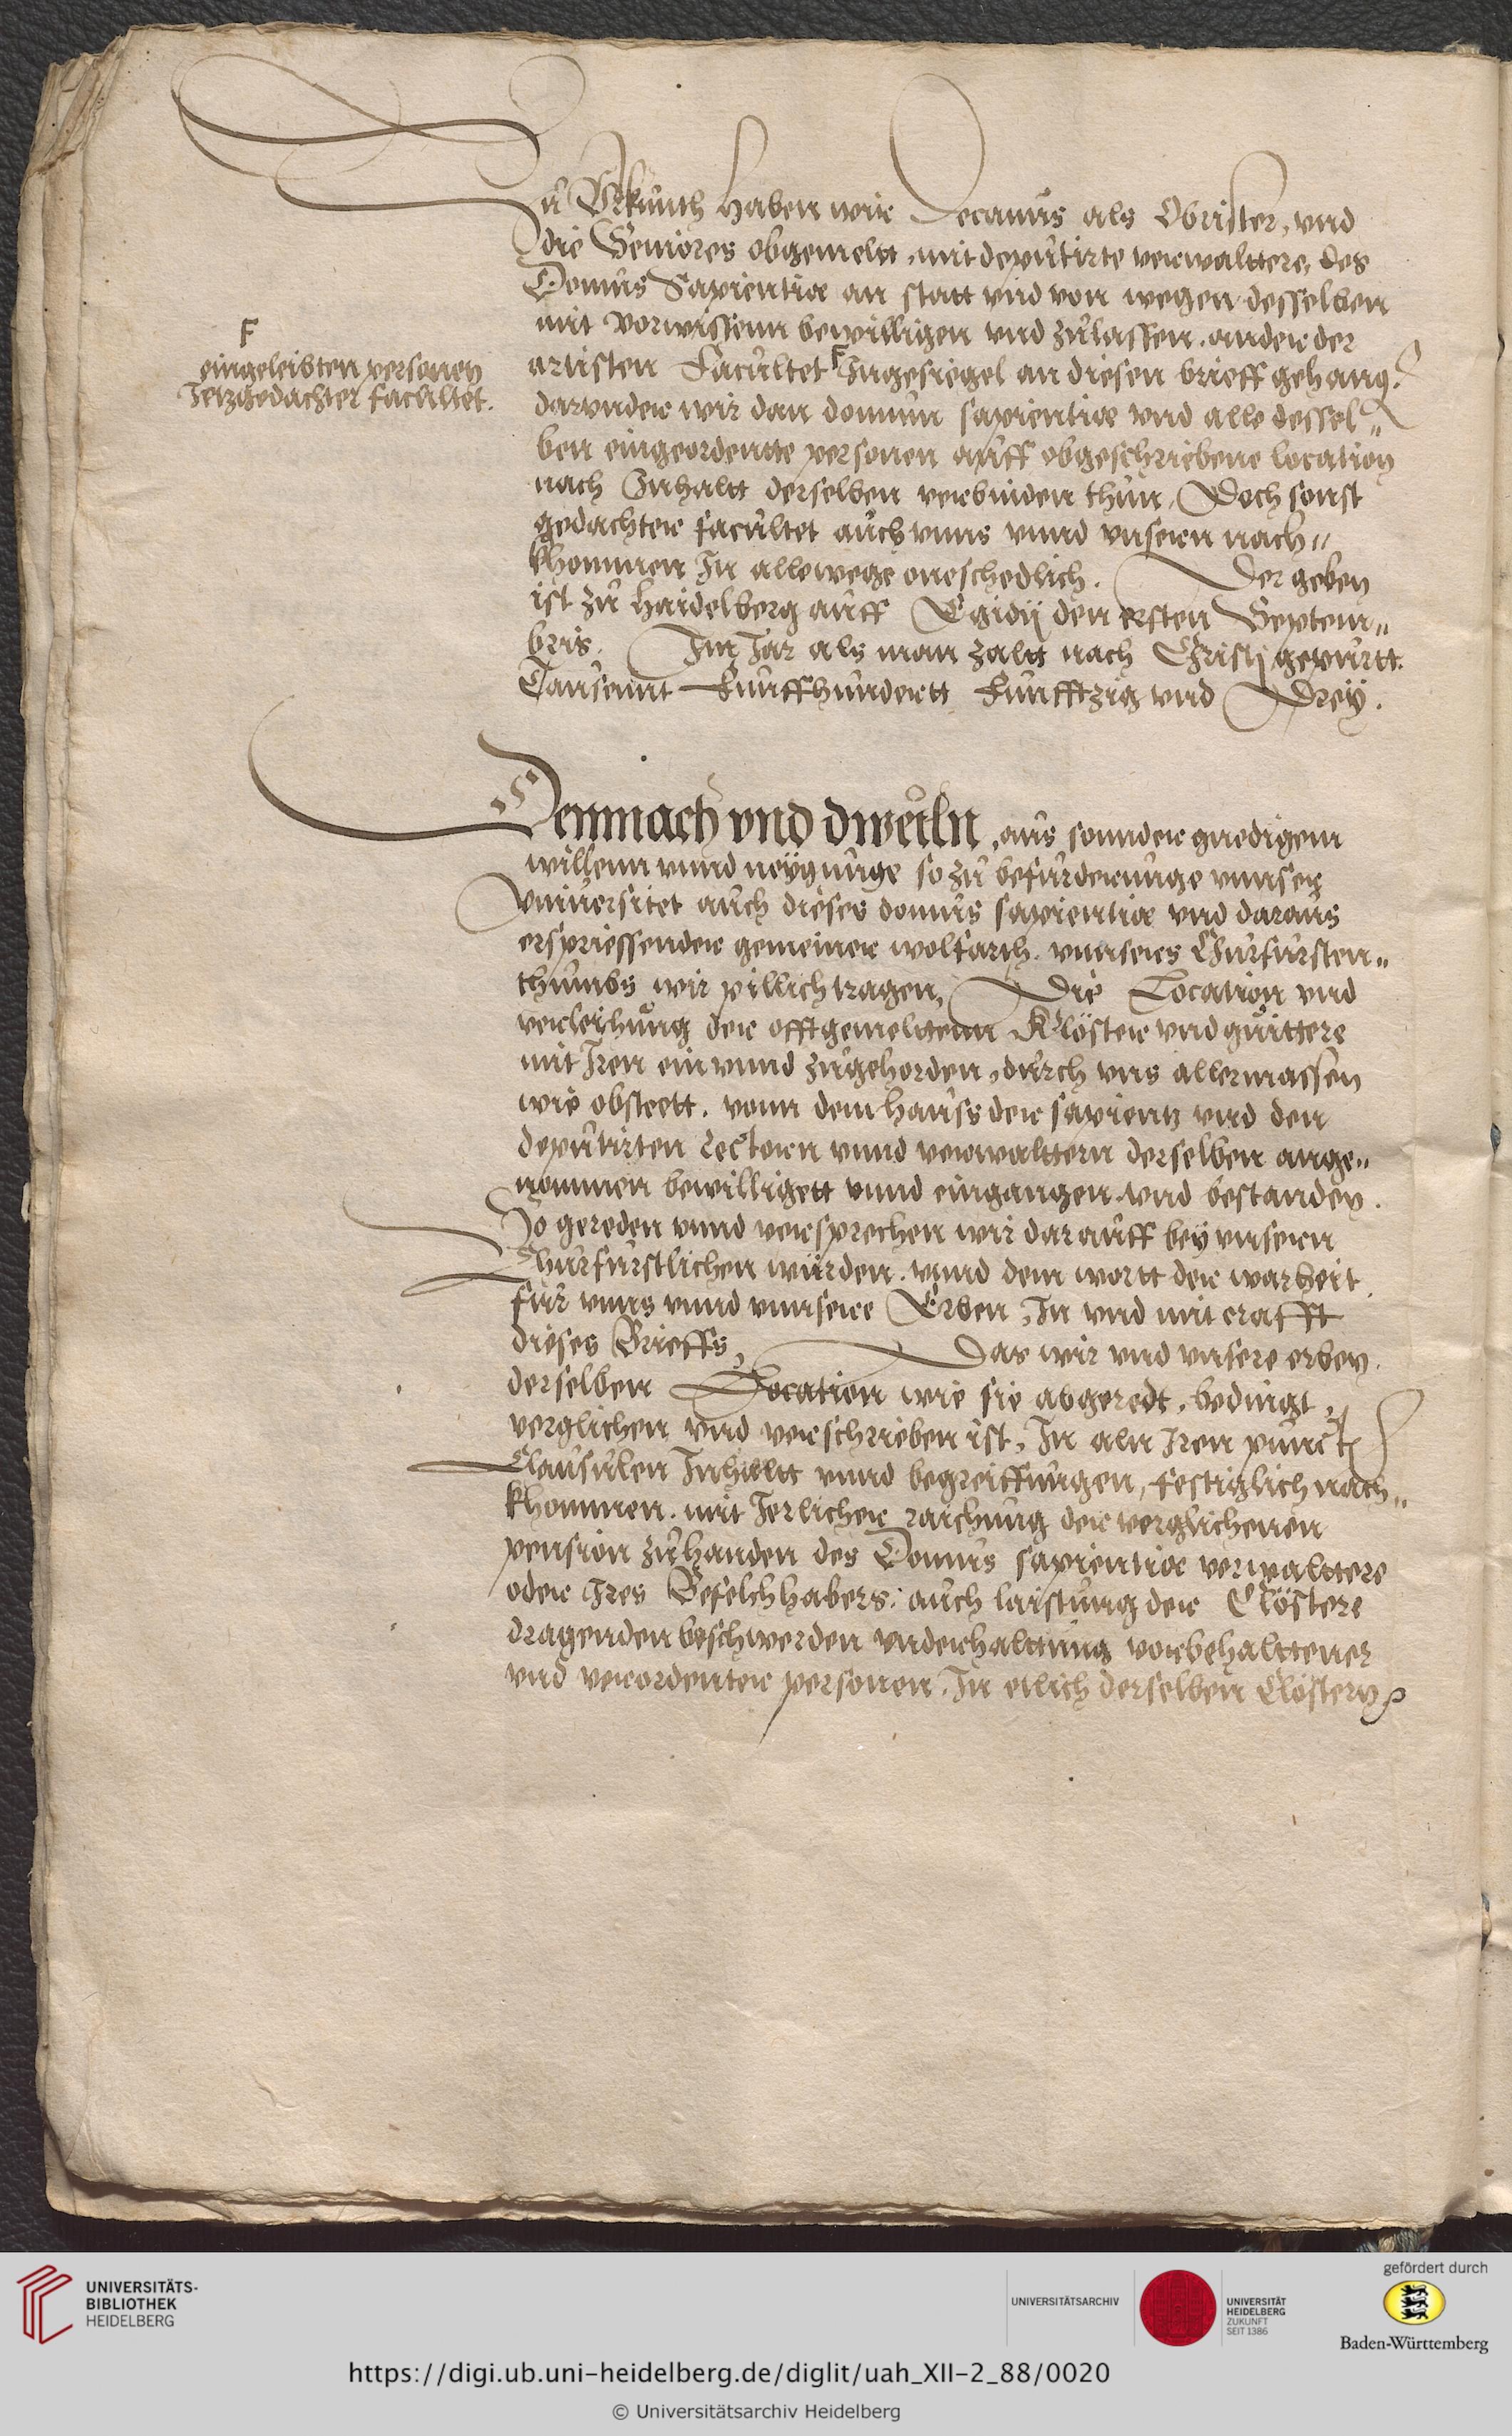 Zu Urkunth haben wir Decanus als Obrister, vnd
die Seniores obgemelt, mit deputirte verwalttere, des
Domus Sapientiæ an statt vnd von wegen desselben
mit vorwissenn bewilligen vnd zulassen. ander der
F
eingeleibten personen
Jetzgedachter facultet.
artisten Facultet F Ingesiegel an diesen brieff gehang.
darunder wir dan domum sapientiæ vnd alle dessel„
ben eingeordente personen auff obgeschriebene location
nach Inhaltt derselben verbinden thun, Doch sonst
gedachter facultet auch vnns vnnd vnseren nach„
khommen In allewege oneschedlich. Der geben
ist zu Haidelberg auff Egidij den ersten Septem„
bris. Im Jar als man zaltt nach Christj gepurtt.
Tausennt Funffhundertt Funfftzig vnd Drey.
Demnach vnd dweiln, aus sonnder gnedigem
willenn vnnd neygunge so zu befurderunge vnnser
Vniuersitet auch dieses domus sapientiæ vnd daraus
erspriessender gemeiner wolfarth. vnnseres Churfursten„
thumbs wir pillich tragen, Die Location vnd
verleyhung der offtgemeltenn Klöster vnd guittere
mit Jren ein vnnd zugehorden, durch vns allermassen
wie obsteett. vonn dem hauss der sapientz vnd den
deputirten rectorn vnnd verwalttern derselben ange„
nommen bewilligett vnnd eingangen vnd bestanden.
So gereden vnnd versprechen wir darauff bey vnseren
Churfurstlichen würden. vnnd dem wortt der warheit.
fur vnns vnnd vnnsere Erben, In vnd mit crafft
dieses Brieffs, Das wir vnd vnsere erben.
derselben Location wie sie abgeredt, bedingt,
verglichen vnd verschrieben ist, In aln Jren punct
Clausulen Inhaltt vnnd begreiffungen, festiglich nach„
khommen. mit Jerlicher raichung der verglichenen
pension zuhanden des Domus sapientiæ verwalttere
oder Jres Befelchhabers: auch laistung der Clöstere
dragenden beschwerden vnderhalttung vorbehalttener
vnd verordenter personen. In etlich derselben Clöstern
UNIVERSITÄTS-
BIBLIOTHEK
HEIDELBERG
UNIVERSITÄTSARCHIV
UNIVERSITÄT
HEIDELBERG
ZUKUNFT
SEIT 1386
gefördert durch
Baden-Württemberg
https://digi.ub.uni-heidelberg.de/diglit/uah_XII-2_88/0020
© Universitätsarchiv Heidelberg